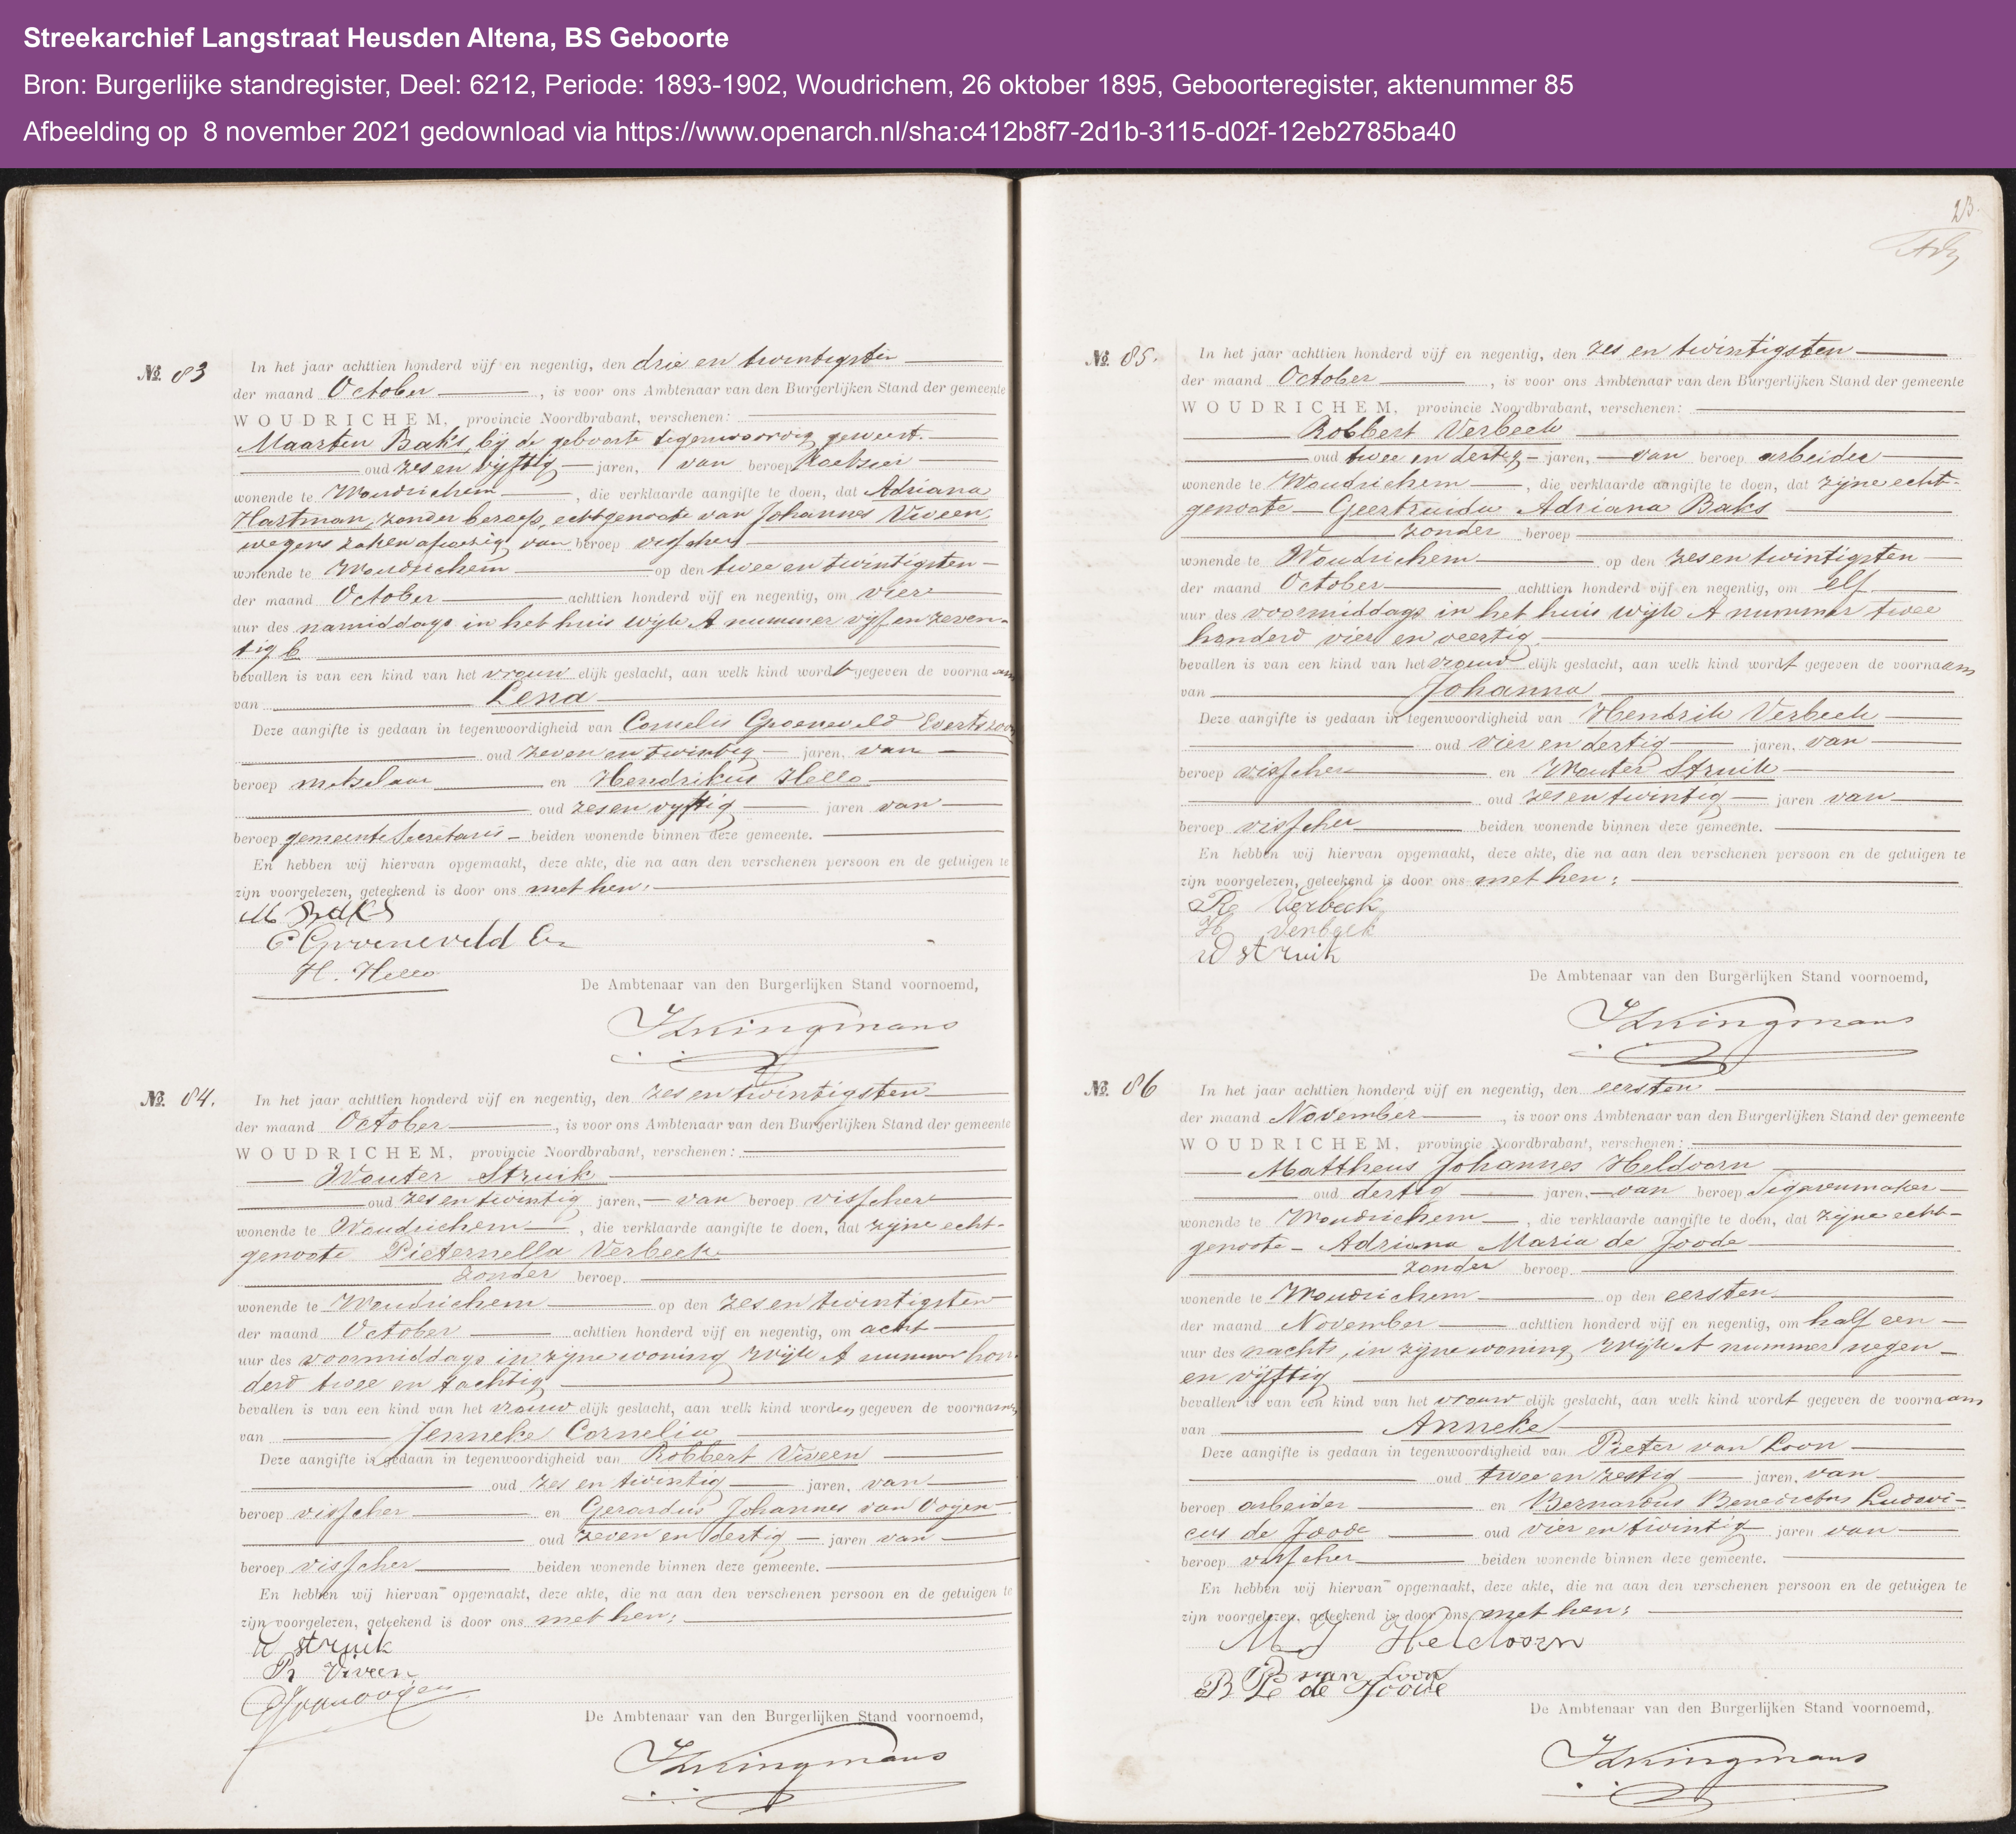 Streekarchief Langstraat Heusden Altena, BS Geboorte
Bron: Burgerlijke standregister, Deel: 6212, Periode: 1893-1902, Woudrichem, 26 oktober 1895, Geboorteregister, aktenummer 85
Afbeelding op 8 november 2021 gedownload via https://www.openarch.nl/sha:c412b8f7-2d1b-3115-d02f-12eb2785ba40
No. 83
In het jaar achttien honderd vijf en negentig, den drie en twintigsten
der maand October, is voor ons Ambtenaar van den Burgerlijken Stand der gemeente
WOUDRICHEM, provincie Noordbrabant, verschenen:
Maarten Baks, bij de geboorte tegenwoordig geweest.
oud zes en vijftig jaren, van beroep
wonende te Woudrichem, die verklaarde aangifte te doen, dat Adriana
Hartman, zonder beroep, echtgenoote van Johannes Viveen,
wegens zaken afwezig van beroep visscher
wonende te Woudrichem op den twee en twintigsten
der maand October achttien honderd vijf en negentig, om vier
uur des namiddags in het huis wijk A nummer vijf en zeven-
tig b
bevallen is van een kind van het vrouwelijk geslacht, aan welk kind wordt gegeven de voornaam
van Lena
Deze aangifte is gedaan in tegenwoordigheid van Cornelis Groeneveld Evertszoon
oud zeven en twintig jaren, van
beroep metselaar en Hendrikus Hello
oud zes en vyftig jaren van
beroep gemeente Secretaris beiden wonende binnen deze gemeente.
En hebben wij hiervan opgemaakt, deze akte, die na aan den verschenen persoon en de getuigen te
zijn voorgelezen, geteekend is door ons met hen.
M Baks
C Groeneveld Ez
H. Hello
De Ambtenaar van den Burgerlijken Stand voornoemd,
No. 84.
In het jaar achttien honderd vijf en negentig, den zes en twintigsten
der maand October, is voor ons Ambtenaar van den Burgerlijken Stand der gemeente
WOUDRICHEM, provincie Noordbrabant, verschenen:
Wouter Struik
oud zes en twintig jaren, van beroep visscher
wonende te Woudrichem, die verklaarde aangifte te doen, dat zijne echt-
genoote Pieternella Verbeek
zonder beroep
wonende te Woudrichem op den zes en twintigsten
der maand October achttien honderd vijf en negentig, om acht
uur des voormiddags in zijne woning wijk A nummer hon-
derd twee en tachtig
bevallen is van een kind van het vrouwelijk geslacht, aan welk kind worden gegeven de voornamen
van Jenneke Cornelia
Deze aangifte is gedaan in tegenwoordigheid van Robbert Viveen
oud zes en twintig jaren, van
beroep visscher en Gerardus Johannes van Oogen
oud zeven en dertig jaren van
beroep visscher beiden wonende binnen deze gemeente.
En hebben wij hiervan opgemaakt, deze akte, die na aan den verschenen persoon en de getuigen te
zijn voorgelezen, geteekend is door ons met hen:
W struik
R Viveen
De Ambtenaar van den Burgerlijken Stand voornoemd,
23.
No. 85.
In het jaar achttien honderd vijf en negentig, den zes en twintigsten
der maand October, is voor ons Ambtenaar van den Burgerlijken Stand der gemeente
WOUDRICHEM, provincie Noordbrabant, verschenen:
Robbert Verbeek
oud twee en dertig jaren, van beroep arbeider
wonende te Woudrichem, die verklaarde aangifte te doen, dat zijne echt-
genoote Geertruida Adriana Baks
zonder beroep
wonende te Woudrichem op den zes en twintigsten
der maand October achttien honderd vijf en negentig, om elf
uur des voormiddags in het huis wijk A nummer twee
honderd vier en veertig
bevallen is van een kind van het vrouwelijk geslacht, aan welk kind wordt gegeven de voornaam
van Johanna
Deze aangifte is gedaan in tegenwoordigheid van Hendrik Verbeek
oud vier en dertig jaren, van
beroep visscher en Wouter Struik
oud zes en twintig jaren van
beroep visscher beiden wonende binnen deze gemeente.
En hebben wij hiervan opgemaakt, deze akte, die na aan den verschenen persoon en de getuigen te
zijn voorgelezen, geteekend is door ons met hen:
R Verbeek
H Verbeek
W struik
De Ambtenaar van den Burgerlijken Stand voornoemd,
No. 86
In het jaar achttien honderd vijf en negentig, den eersten
der maand November, is voor ons Ambtenaar van den Burgerlijken Stand der gemeente
WOUDRICHEM, provincie Noordbrabant, verschenen:
Mattheus Johannes Heldoorn
oud dertig jaren, van beroep Sigarenmaker
wonende te Woudrichem, die verklaarde aangifte te doen, dat zijne echt-
genoote Adriana Maria de Joode
zonder beroep
wonende te Woudrichem op den eersten
der maand November achttien honderd vijf en negentig, om half een
uur des nachts, in zijne woning wijk A nummer negen
en vijftig
bevallen is van een kind van het vrouwelijk geslacht, aan welk kind wordt gegeven de voornaam
van Anneke
Deze aangifte is gedaan in tegenwoordigheid van Pieter van Loon
oud twee en zestig jaren, van
beroep arbeider en Bernardus Benedictus Ludovi-
cus de Joode oud vier en twintig jaren van
beroep visscher beiden wonende binnen deze gemeente.
En hebben wij hiervan opgemaakt, deze akte, die na aan den verschenen persoon en de getuigen te
zijn voorgelezen, geteekend is door ons met hen:
M J Heldoorn
P van Loon
de Joode
De Ambtenaar van den Burgerlijken Stand voornoemd,